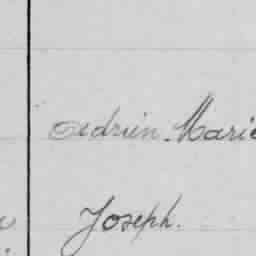 Adrien Marie
Joseph.